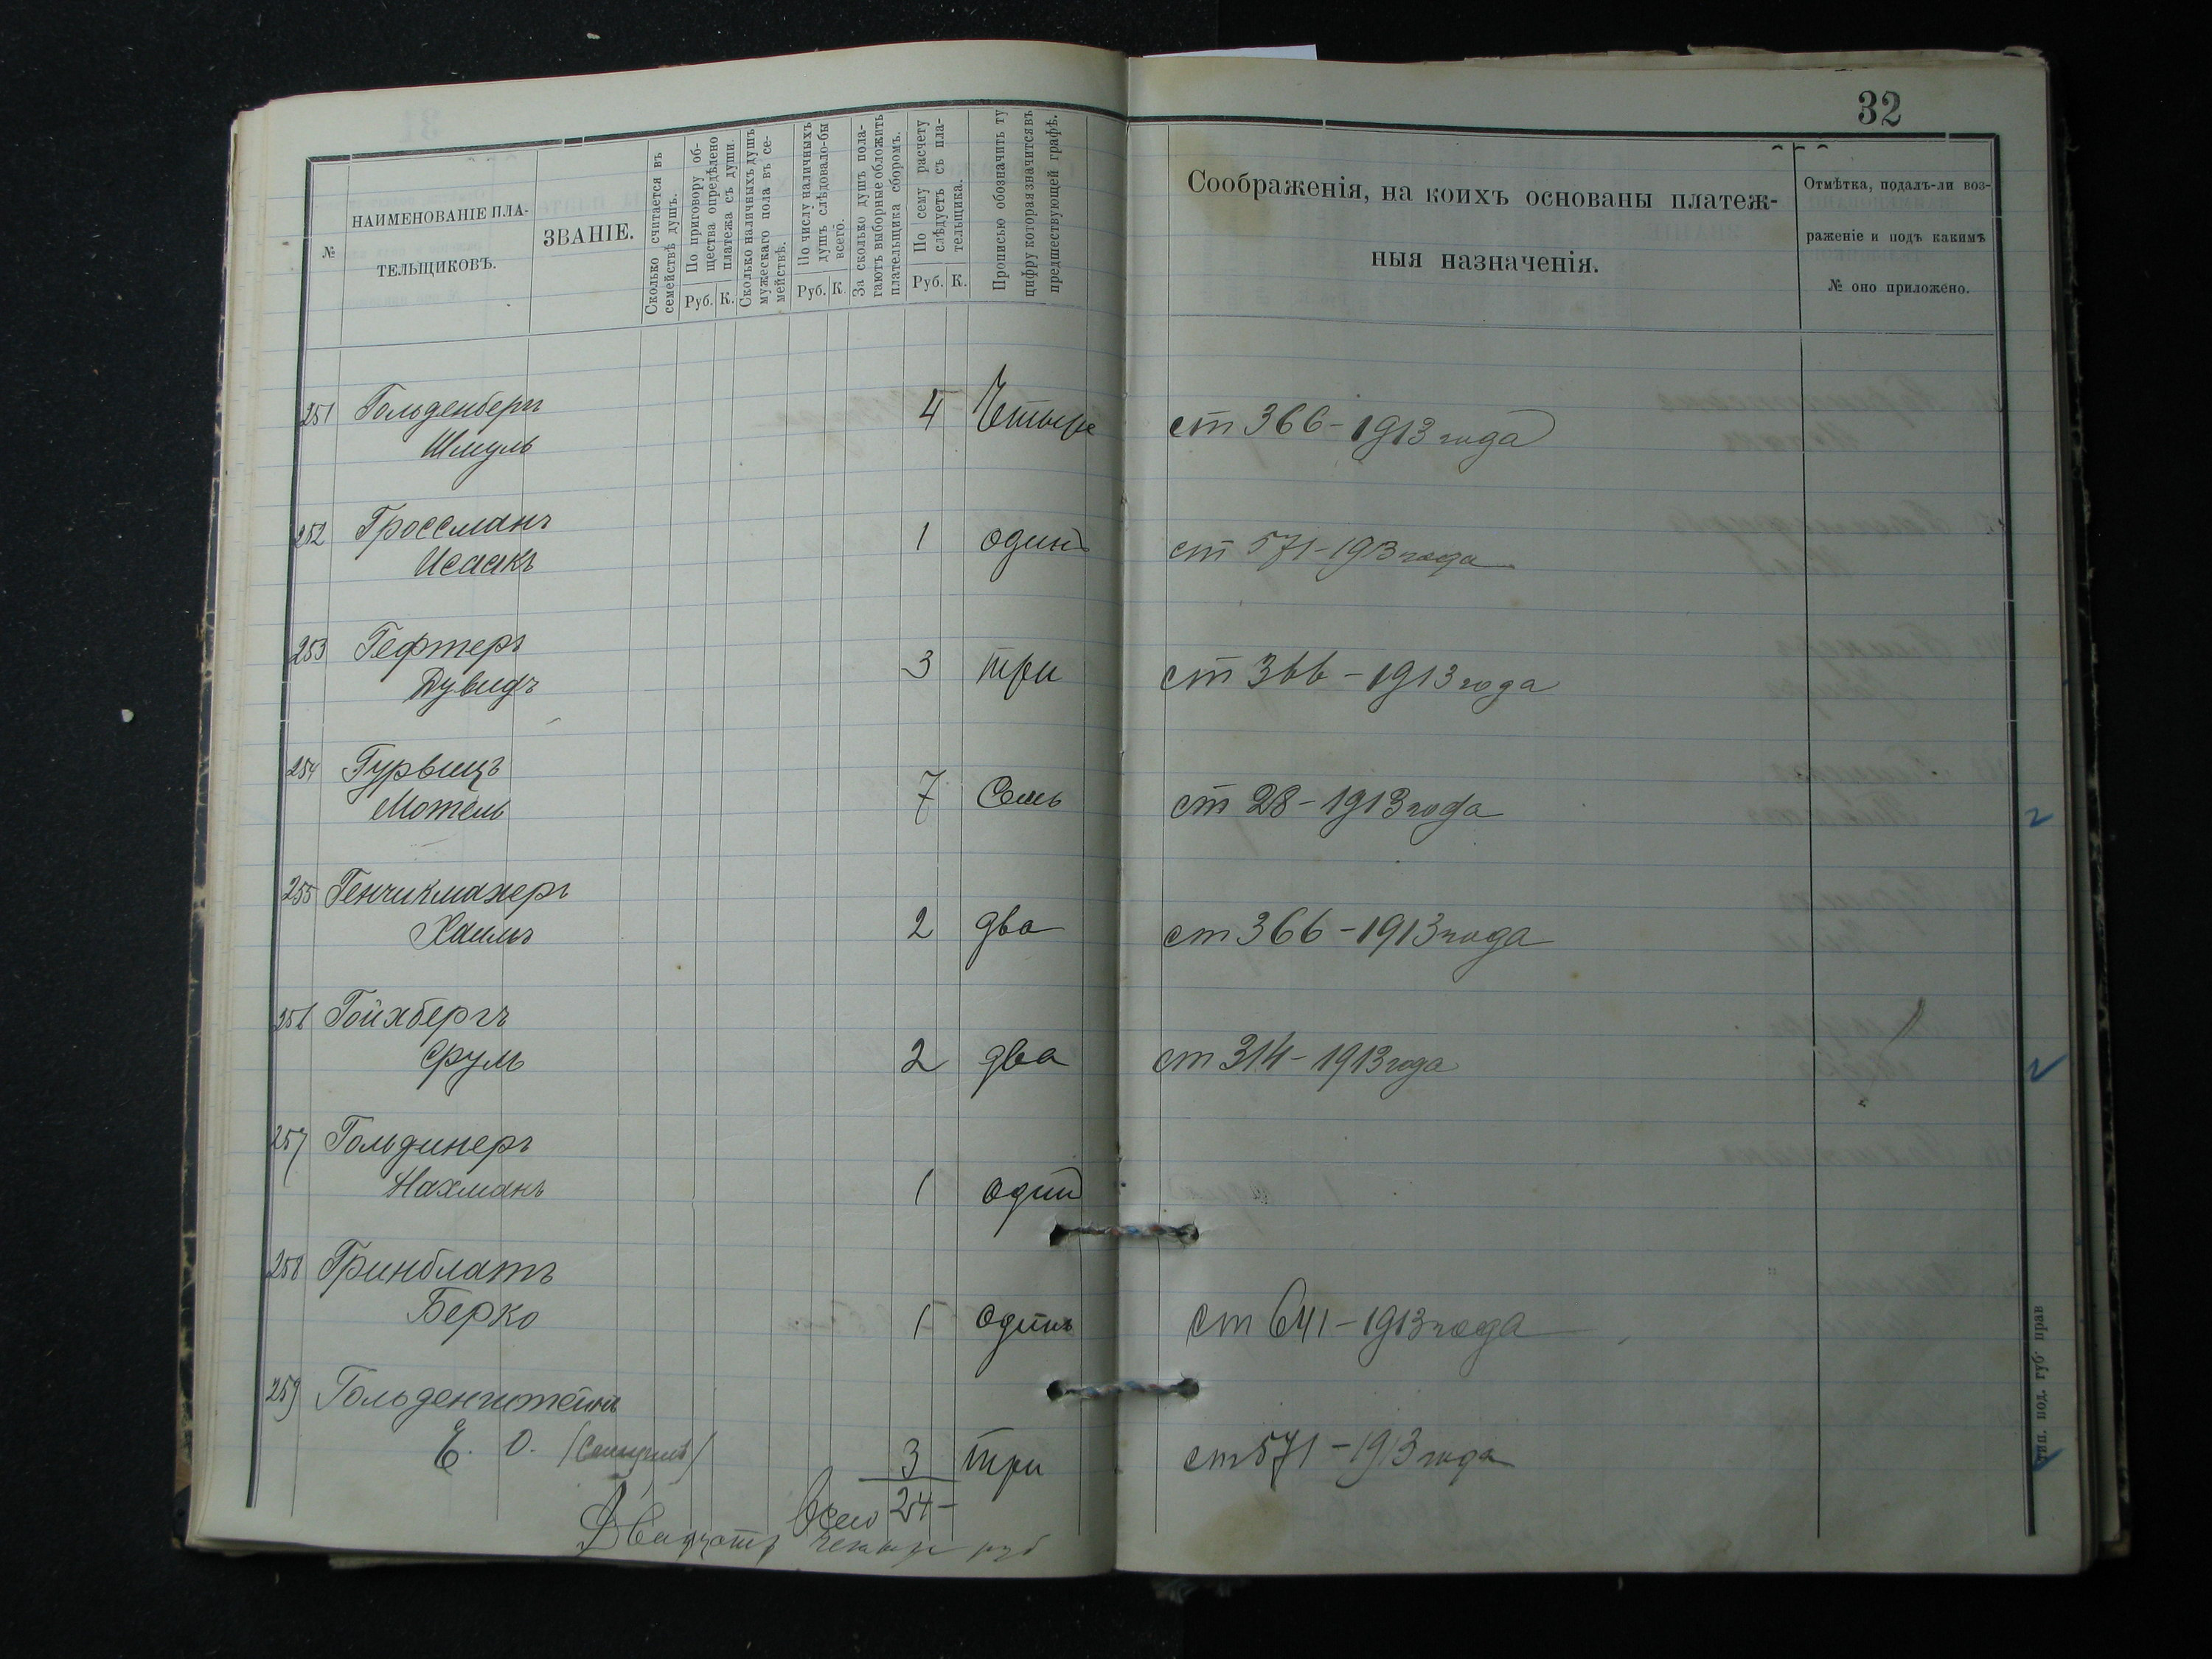 32
№
НАИМЕНОВАНІЕ ПЛА-
ТЕЛЬЩИКОВЪ.
ЗВАНІЕ.
Сколько считается въ
семействѣ душъ.
По приговору об-
щества опредѣлено
платежа съ души.
Руб. К.
Сколько наличныхъ душъ
мужескаго пола въ се-
мействѣ.
По числу наличныхъ
душъ слѣдовало-бы
всего.
Руб. К
За сколько душъ пола-
гаютъ выборные обложить
плательщика сборомъ.
По сему расчету
слѣдуетъ съ пла-
тельщика.
Руб. К.
Прописью обозначить ту
цифру которая значится въ
предшествующей графѣ.
Соображенія, на коихъ основаны платеж-
ныя назначенія.
Отмѣтка, подалъ-ли воз-
раженіе и подъ какимъ
№ оно приложено.
251 Гольденбергъ
Шмуль 4 Четыре ст 366 - 1913 года
252 Гроссманъ
Исаакъ 1 одинъ ст 571 - 1913 года
253 Гефтеръ
Дувидъ 3 три ст 366 - 1913 года
254 Гурвицъ
Мотель 7 Семь ст 28 - 1913 года
255 Генчикмахеръ
Хаимъ 2 два ст 366 - 1913 года
256 Гойхбергъ
Сруль 2 два ст 314 - 1913 года
257 Гольдинеръ
Нахманъ 1 один
258 Гринблатъ
Берко 1 одинъ ст 641 - 1913 года
259 Гольденштейнъ
Е. О. 3 три ст 571 - 1913 года
Всего 24 -
Двадцать четыре руб
тип. под. губ. прав